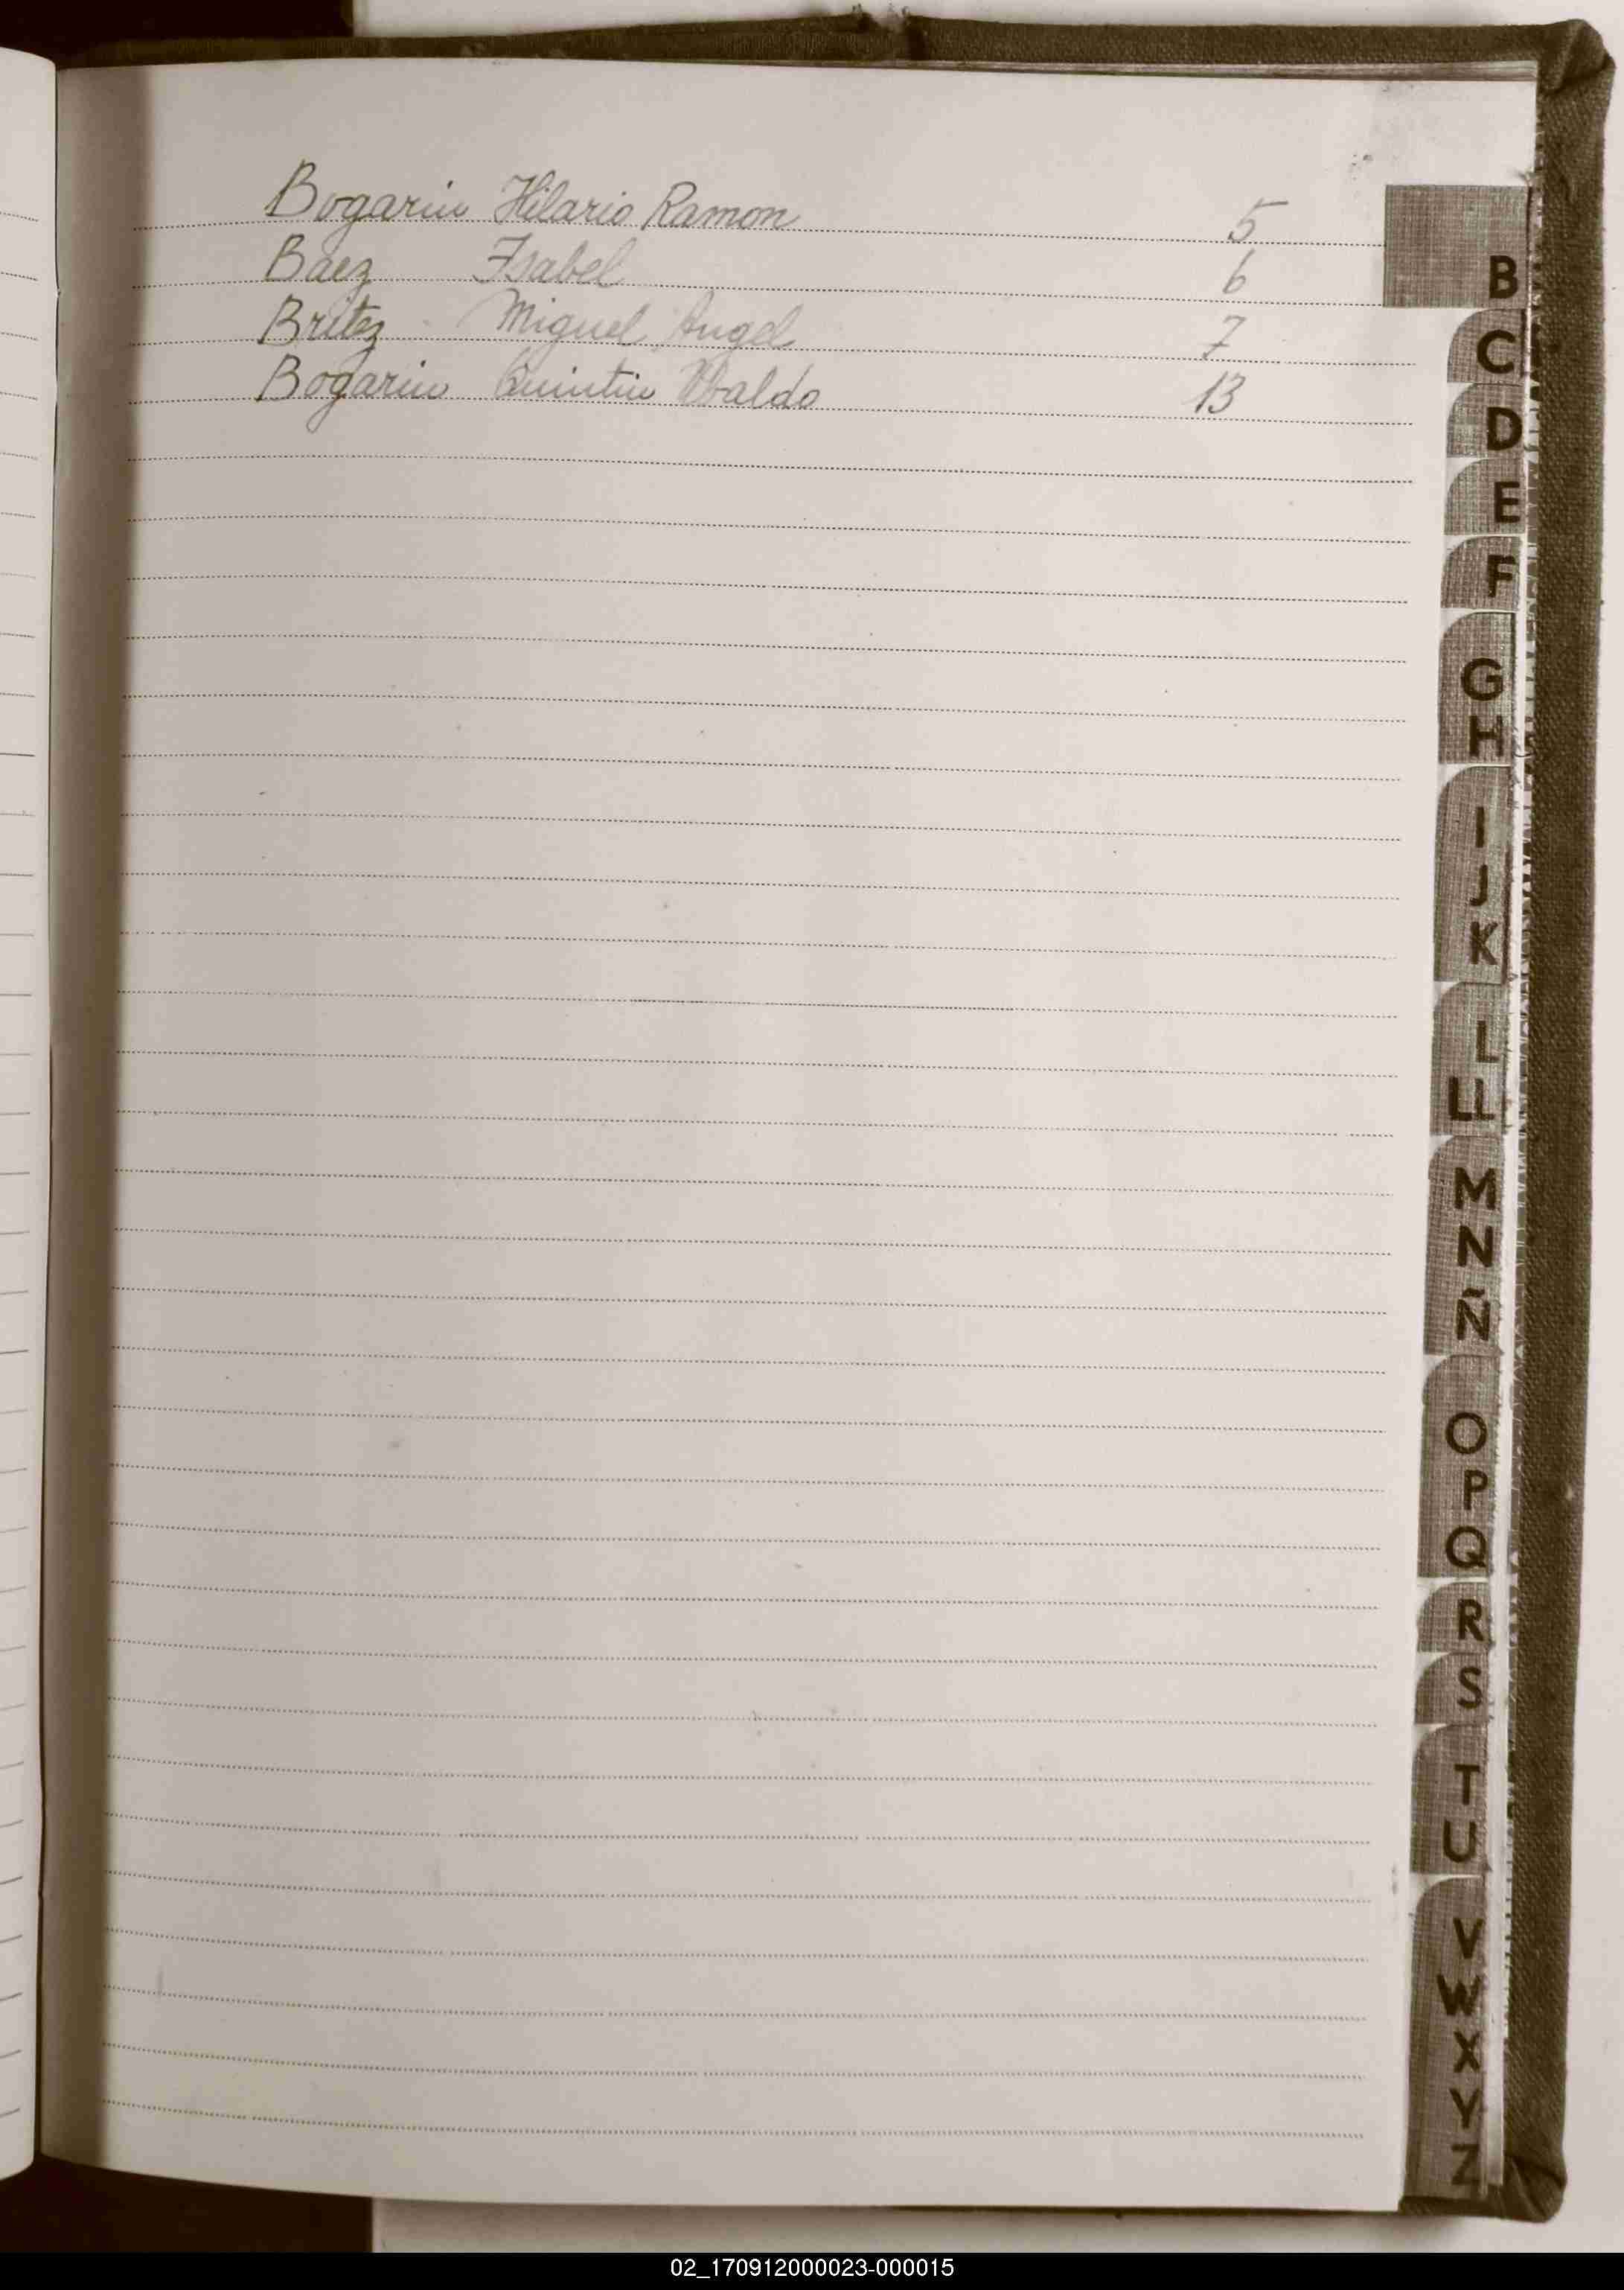 Bogarin Hilario Ramon 5
Baez Isabel 6
Britez Miguel Angel 7
Bogarin Quintin Ubaldo 13
B
C
D
E
F
G
H
I
J
K
L
Ll
M
N
Ñ
O
P
Q
R
S
T
U
V
W
X
Y
Z
02_170912000023-000015